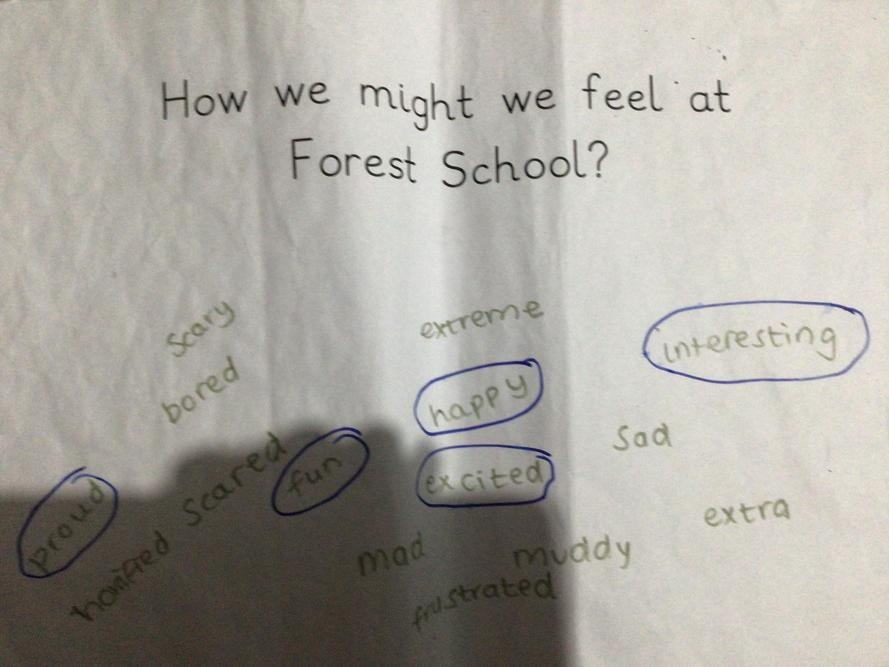 How we might we feel at
Forest School?
scary
extreme
interesting
bored
happy
sad
scared
fun
excited
proud
extra
horrified
mad
muddy
frustrated